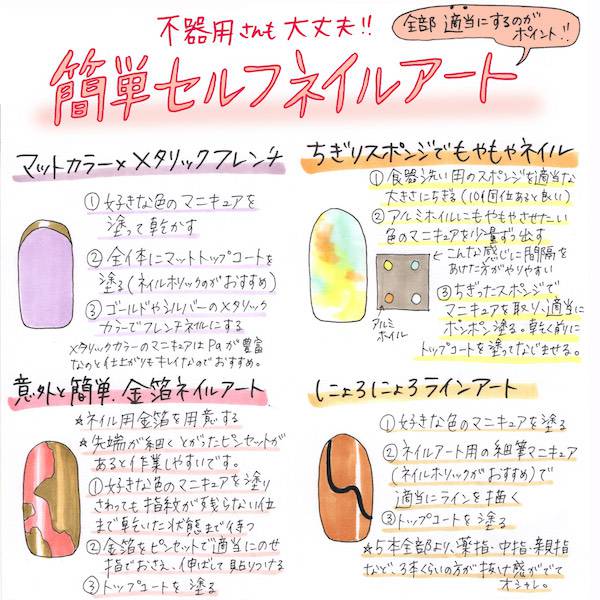 不器用さんも大丈夫!!
全部適当にするのが
ポイント!!
簡単セルフネイルアート
マットカラー×メタリックフレンチ
①好きな色のマニキュアを
塗って乾かす
②全体にマットトップコートを
塗る(ネイルホリックのがおすすめ)
③ゴールドやシルバーのメタリック
カラーでフレンチネイルにする
メタリックカラーのマニキュアはPaが豊富
なのと仕上がりもキレイなのでおすすめ。
ちぎりスポンジでもやもやネイル
①食器洗い用のスポンジを適当な
大きさにちぎる(10個位あると良い)
②アルミホイルにもやもやさせたい
色のマニキュアを少量ずつ出す
←こんな感じに間隔を
あけた方がやりやすい
アルミ
ホイル
③ちぎったスポンジで
マニキュアを取り、適当に
ポンポン塗る。乾く前に
トップコートを塗ってなじませる。
意外と簡単、金箔ネイルアート
☆ネイル用金箔を用意する
☆先端が細くとがったピンセットが
あると作業しやすいです。
①好きな色のマニキュアを塗り
さわっても指紋が残らない位
まで乾いた状態まで待つ
②金箔をピンセットで適当にのせ
指でおさえ、伸ばして貼りつける
③トップコートを塗る
にょろにょろラインアート
①好きな色のマニキュアを塗る
②ネイルアート用の細筆マニキュア
(ネイルホリックがおすすめ)で
適当にラインを描く
③トップコートを塗る
☆5本全部より、薬指・中指・親指
など、3本くらいの方が抜け感がでて
オシャレ。